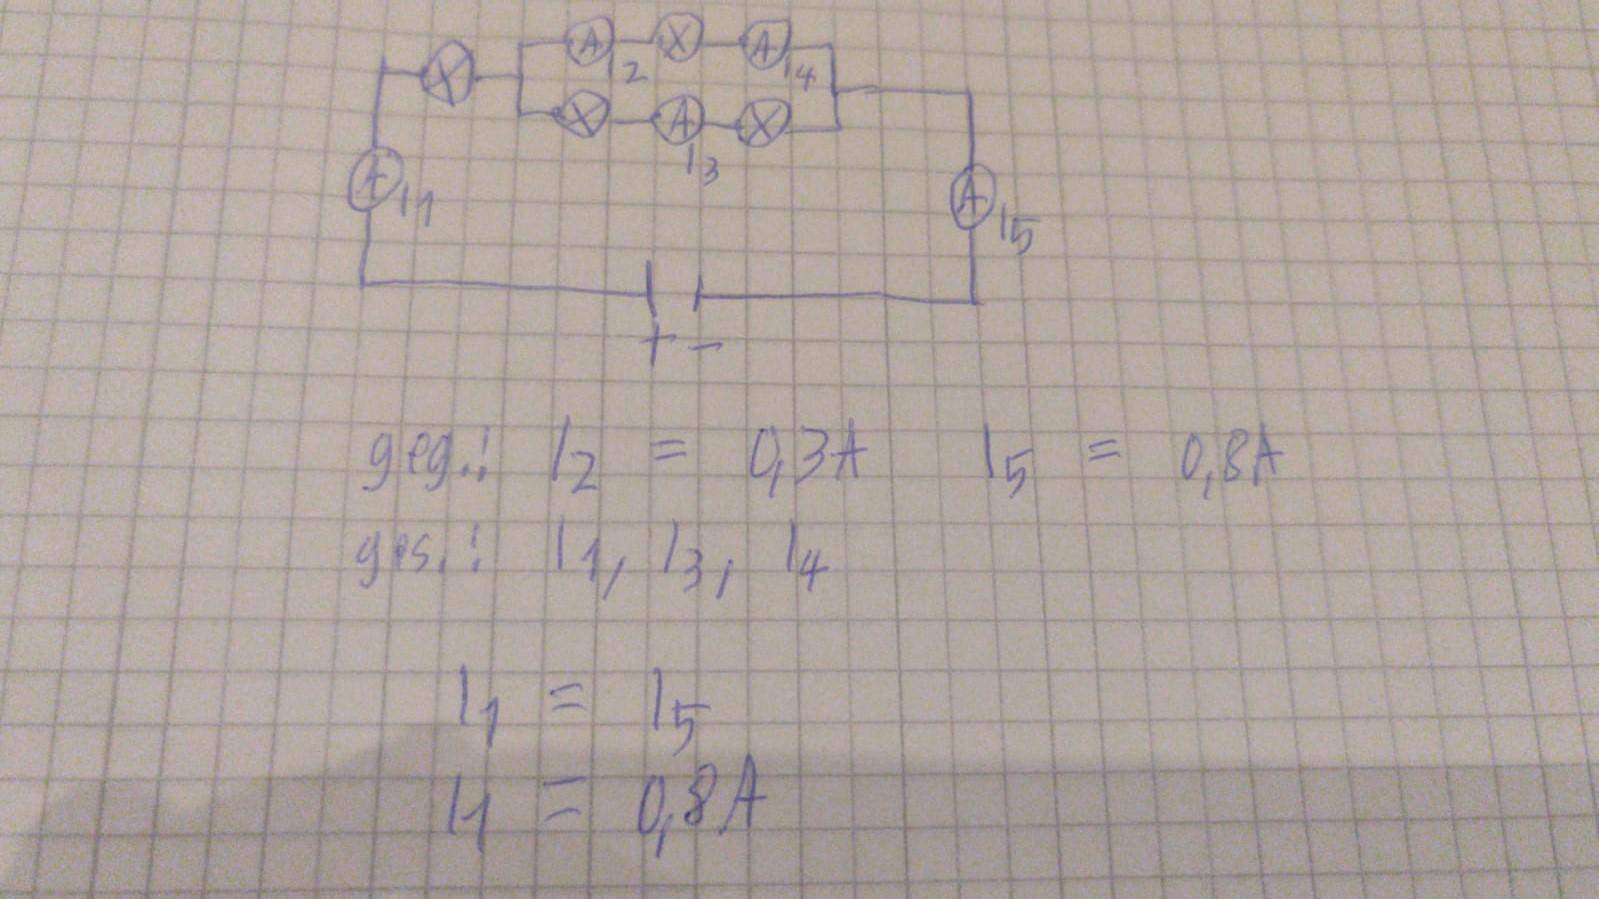 A X A
I2 I4
X
X A X
I3
A I1
A I5
+ -
geg.: I2 = 0,3A I5 = 0,8A
ges.: I1, I3, I4
I1 = I5
I1 = 0,8A